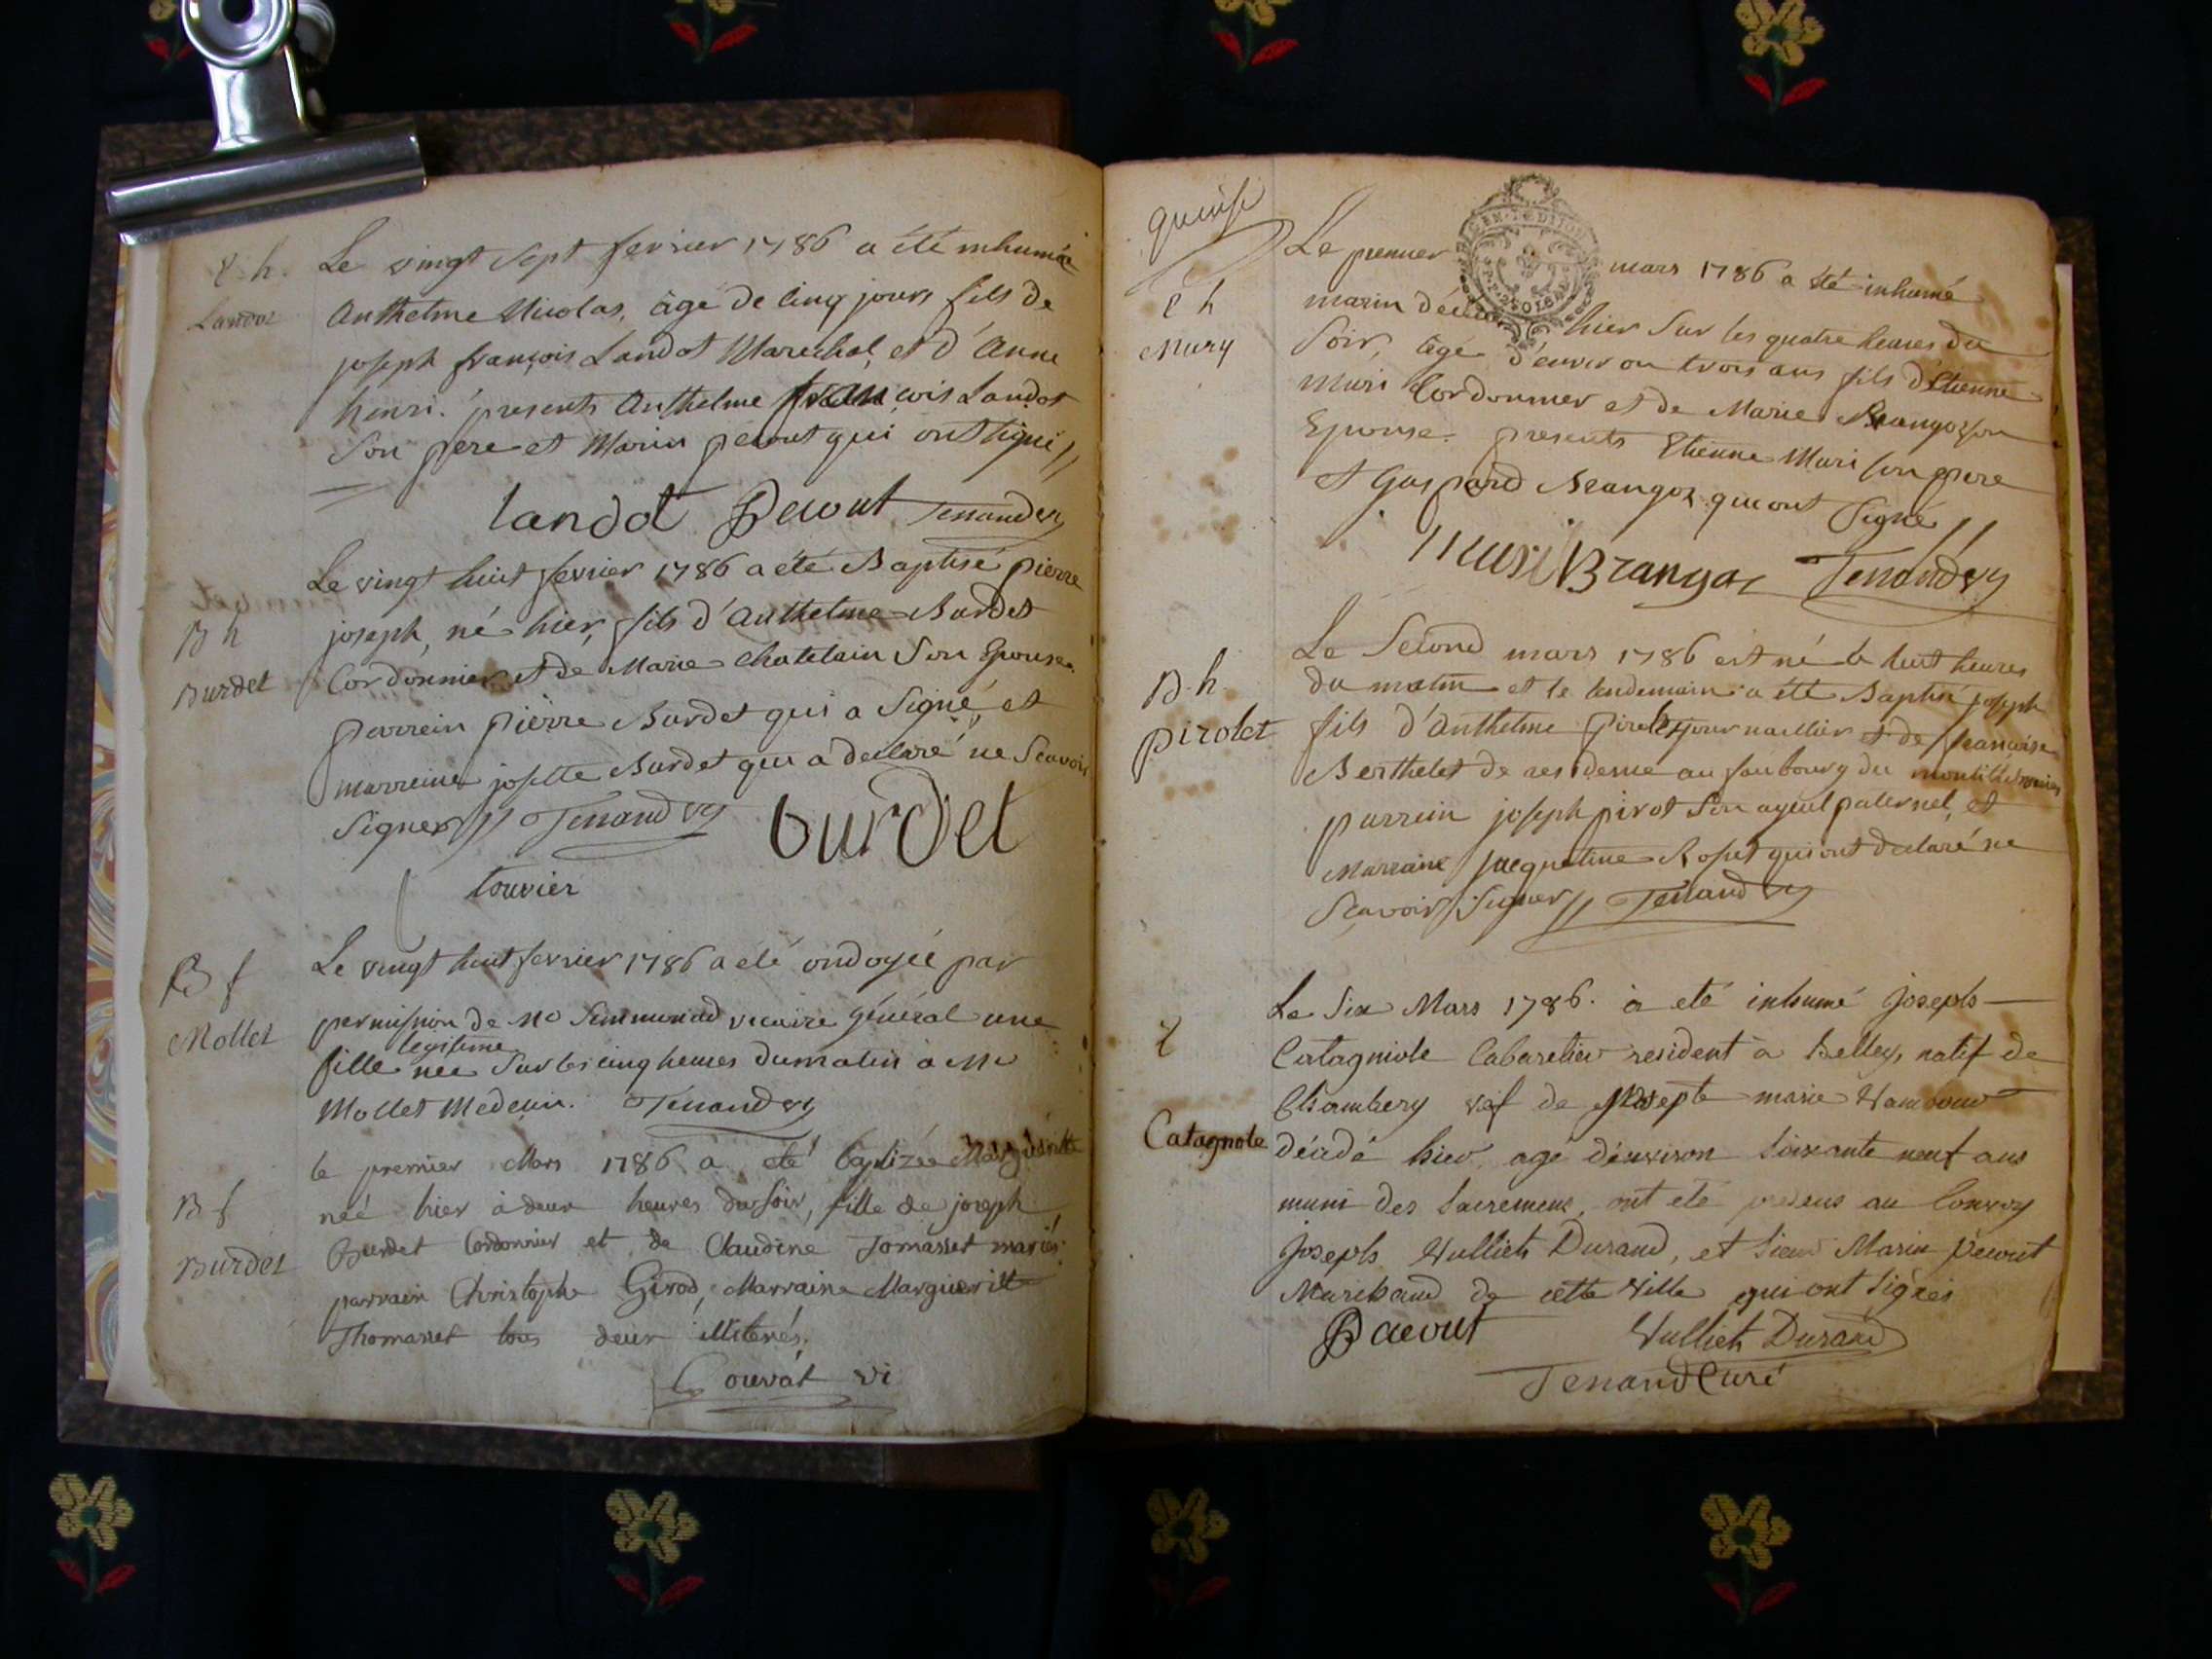 h.
Landoz
Le vingt sept fevrier 1786 a été inhumée
Anthelme Nicolas, âgé de cinq jours fils de
joseph françois Landot Marechal, et d'Anne
henri. presents Anthelme françois Landot
Son pere et Marin pecout qui ont signé //
landot Pecout Tenand vy
B h
Burdet
Le vingt huit fevrier 1786 a été Baptisé pierre
joseph, né hier, fils d'Anthelme Burdet
Cordonnier et de Marie Chatelain Son Epouse.
parrein pierre Burdet qui a Signé, et
marreine josette Burdet qui a declaré ne Scavoir
Signer // Tenand vy burdet
touvier
B f
Mollet
Le vingt huit fevrier 1786 a été ondoyée par
permission de Mr vicaire général une
legitime
fille née Sur les cinq heures du matin à Mr
Mollet Medecin. Tenand vy
B f
Burdet
le premier Mars 1786 a été baptizée Margueritte
née hier à deux heures du soir, fille de joseph
Burdet Cordonnier et de Claudine Tomasset mariés
parrain Christophe Girod, Marraine Margueritte
Thomasset tous deux illiterés.
Couvat vi
quinse
h
Mury
Le premier mars 1786 a été inhumé
marin décédé hier Sur les quatre heures du
Soir, âgé d'environ trois ans fils d'Etienne
Muri Cordonnier et de Marie Brangoz son
Epouse. presents Etienne Muri son pere
et Gaspard Brangoz qui ont Signé //
Muri Brangaz Tenand vy
B. h.
pirolet
Le Second mars 1786 est né à huit heures
du matin et le lendemain a été Baptisé joseph
fils d'Anthelme journallier et de francoise
Berthelet de residence au faubourg du
parrein joseph pirot Son ayeul paternel, et
Marraine jacqueline Roset qui ont declaré ne
Scavoir Signer // Tenand vy
Catagnole
Le Six Mars 1786. à eté inhumé Joseph
Catagniole Cabaretier resident à Belley, natif de
Chambery vef de Josepte marie
décédé hier, agé d'environ soixante neuf ans
muni des sacremens, ont eté presens au Convoy
Joseph Vullieth Durand, et sieur Marin Pecout
Marchand de cette Ville qui ont signés
Pacout Vullieth Durand
Tenand Curé